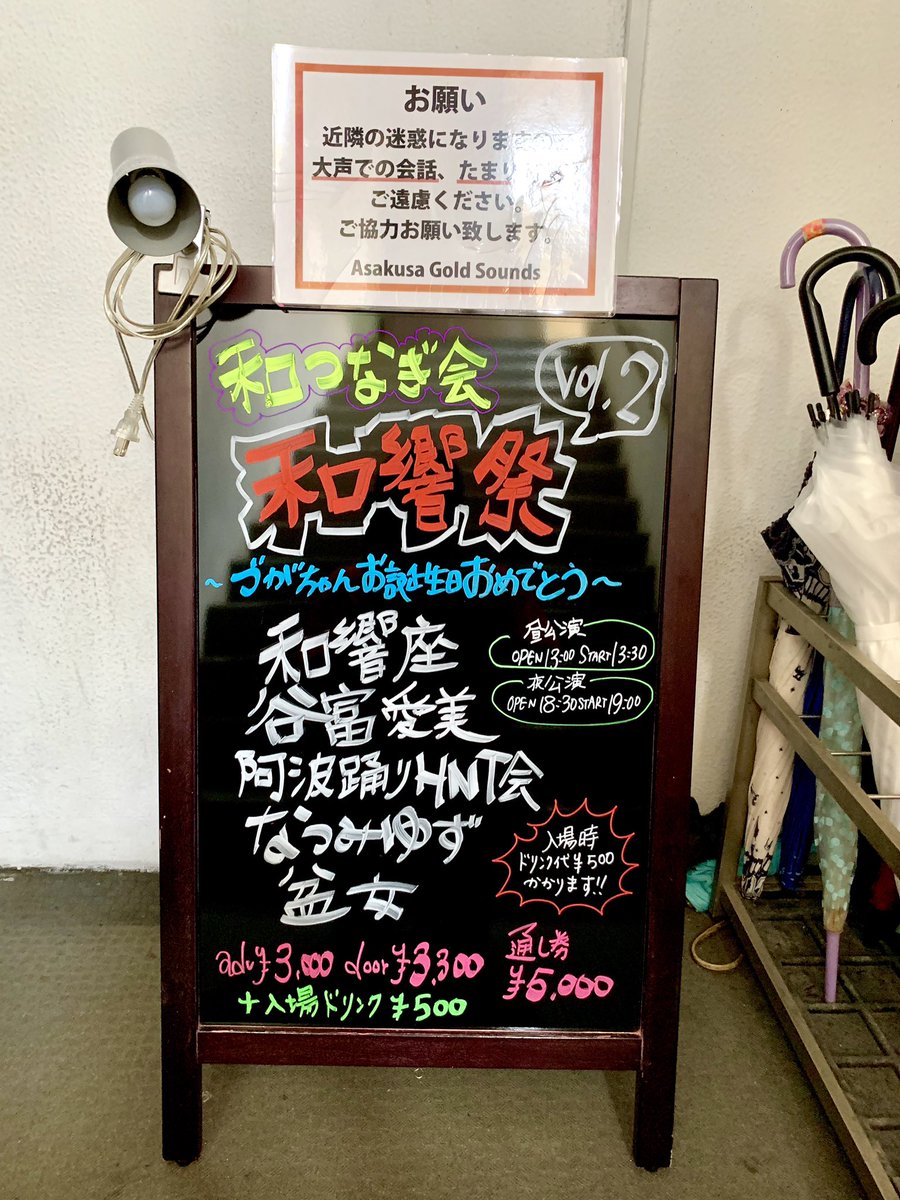 お願い
近隣の迷惑になります
大声での会話、たまり
ご遠慮ください。
ご協力お願い致します。
Asakusa Gold Sounds
和つなぎ会
vol.2
和響祭
~づがちゃんお誕生日おめでとう~
和響座
谷富愛美
阿波踊りHNT会
なつみゆず
盆女
昼公演
OPEN13:00 START13:30
夜公演
OPEN18:30 START19:00
入場時
ドリンク代¥500
かかります!!
adv¥3,000 door¥3,300
+入場ドリンク ¥500
通し券
¥5,000